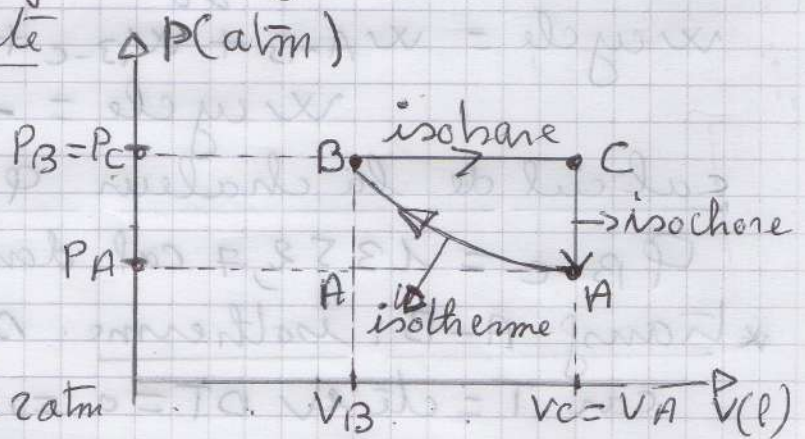 té
P(atm)
PB=PC
B
isobare
C
isochore
PA
A
A
isotherme
2atm
VB
VC=VA
V(l)